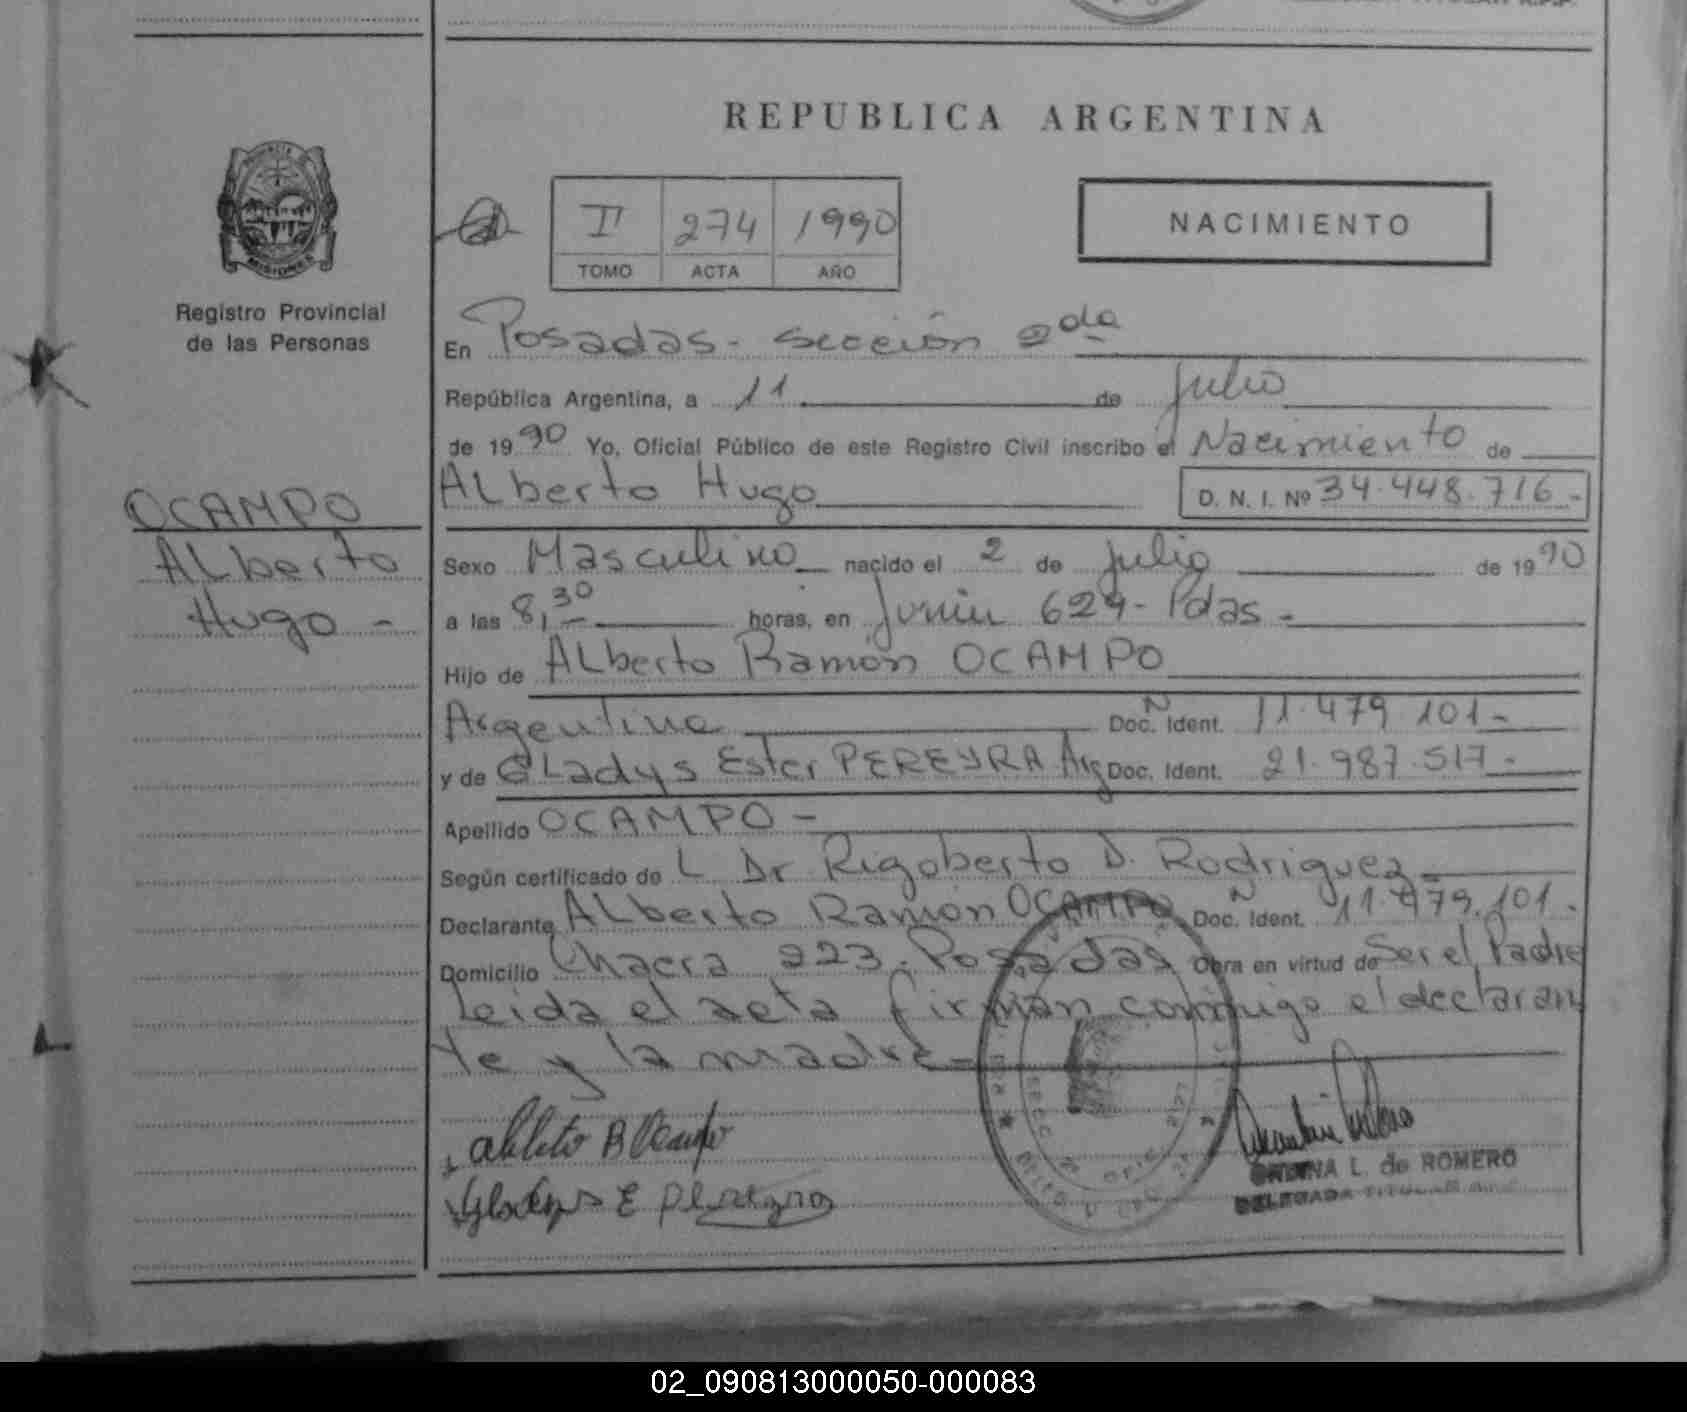 REPUBLICA ARGENTINA
MISIONES
Registro Provincial
de las Personas
II 274 1990
TOMO ACTA AÑO
NACIMIENTO
En Posadas - Sección 2da
República Argentina, a 11 de Julio
de 1990 Yo, Oficial Público de este Registro Civil inscribo el Nacimiento de
OCAMPO
Alberto Hugo
ALberto Hugo D. N. I. Nº 34.448.716-
Sexo Masculino nacido el 2 de Julio de 1990
a las 8,30 horas, en Junin 629- Pdas-
Hijo de ALberto Ramón OCAMPO
Argentina Doc. Ident. 11.479.101-
y de GLadys Ester PEREYRA Arg Doc. Ident. 21.987.517-
Apellido OCAMPO-
Según certificado de L Dr Rigoberto D. Rodriguez
Declarante ALberto Ramón OCAMPO Doc. Ident. 11.479.101.
Domicilio Chacra 223. Posadas Obra en virtud de Ser el Padre
Leida el acta firman conmigo el declaran
te y la madre-
Gladys E Pereyra
L. de ROMERO
DELEGADA TITULAR
02_090813000050-000083